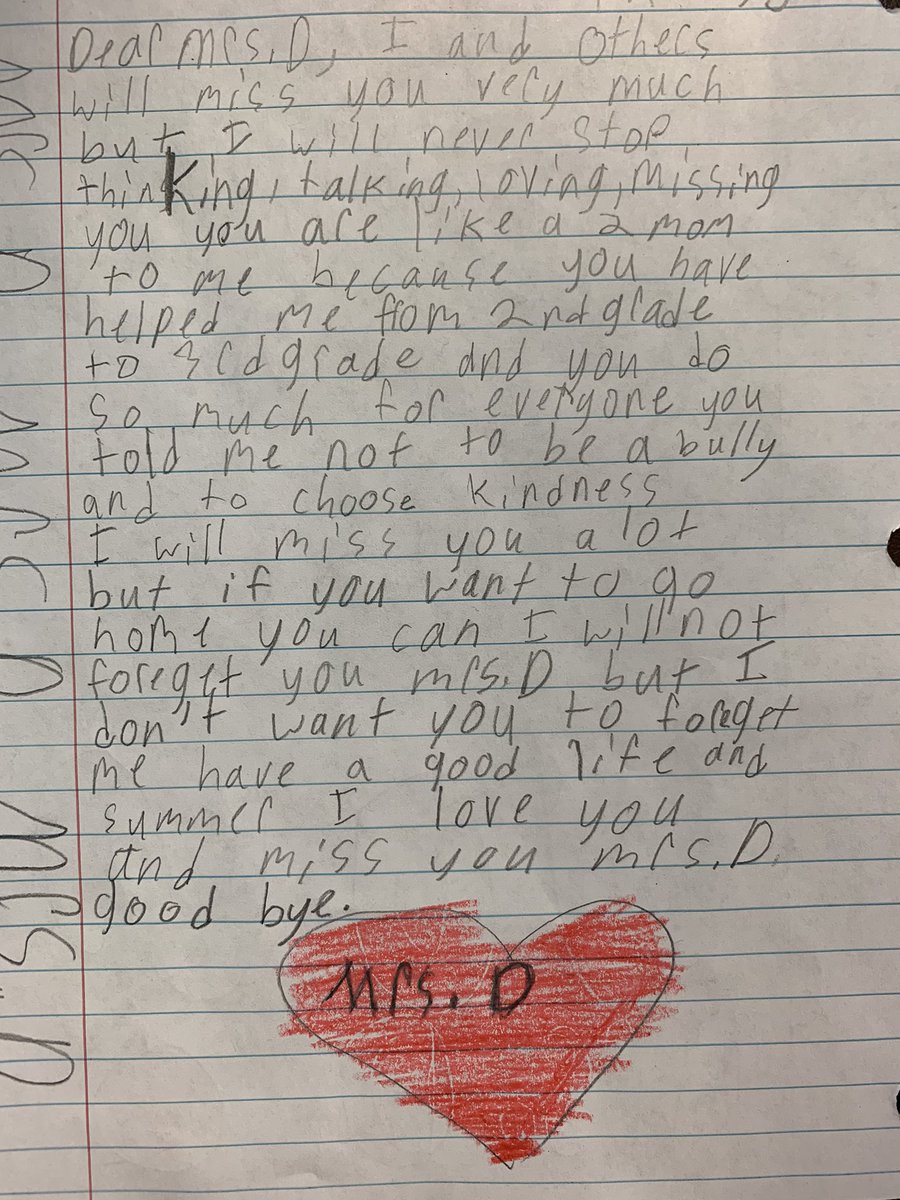 Dear Mrs. D, I and others
will miss you very much
but I will never stop
thinking, talking, loving, missing
you you are like a 2 mom
to me because you have
helped me from 2nd grade
to 3rd grade and you do
so much for everyone you
told me not to be a bully
and to choose kindness
I will miss you a lot
but if you want to go
home you can I will not
foreget you mrs. D but I
don't want you to foreget
me have a good life and
summer I love you
and miss you mrs. D.
good bye.
Mrs. D